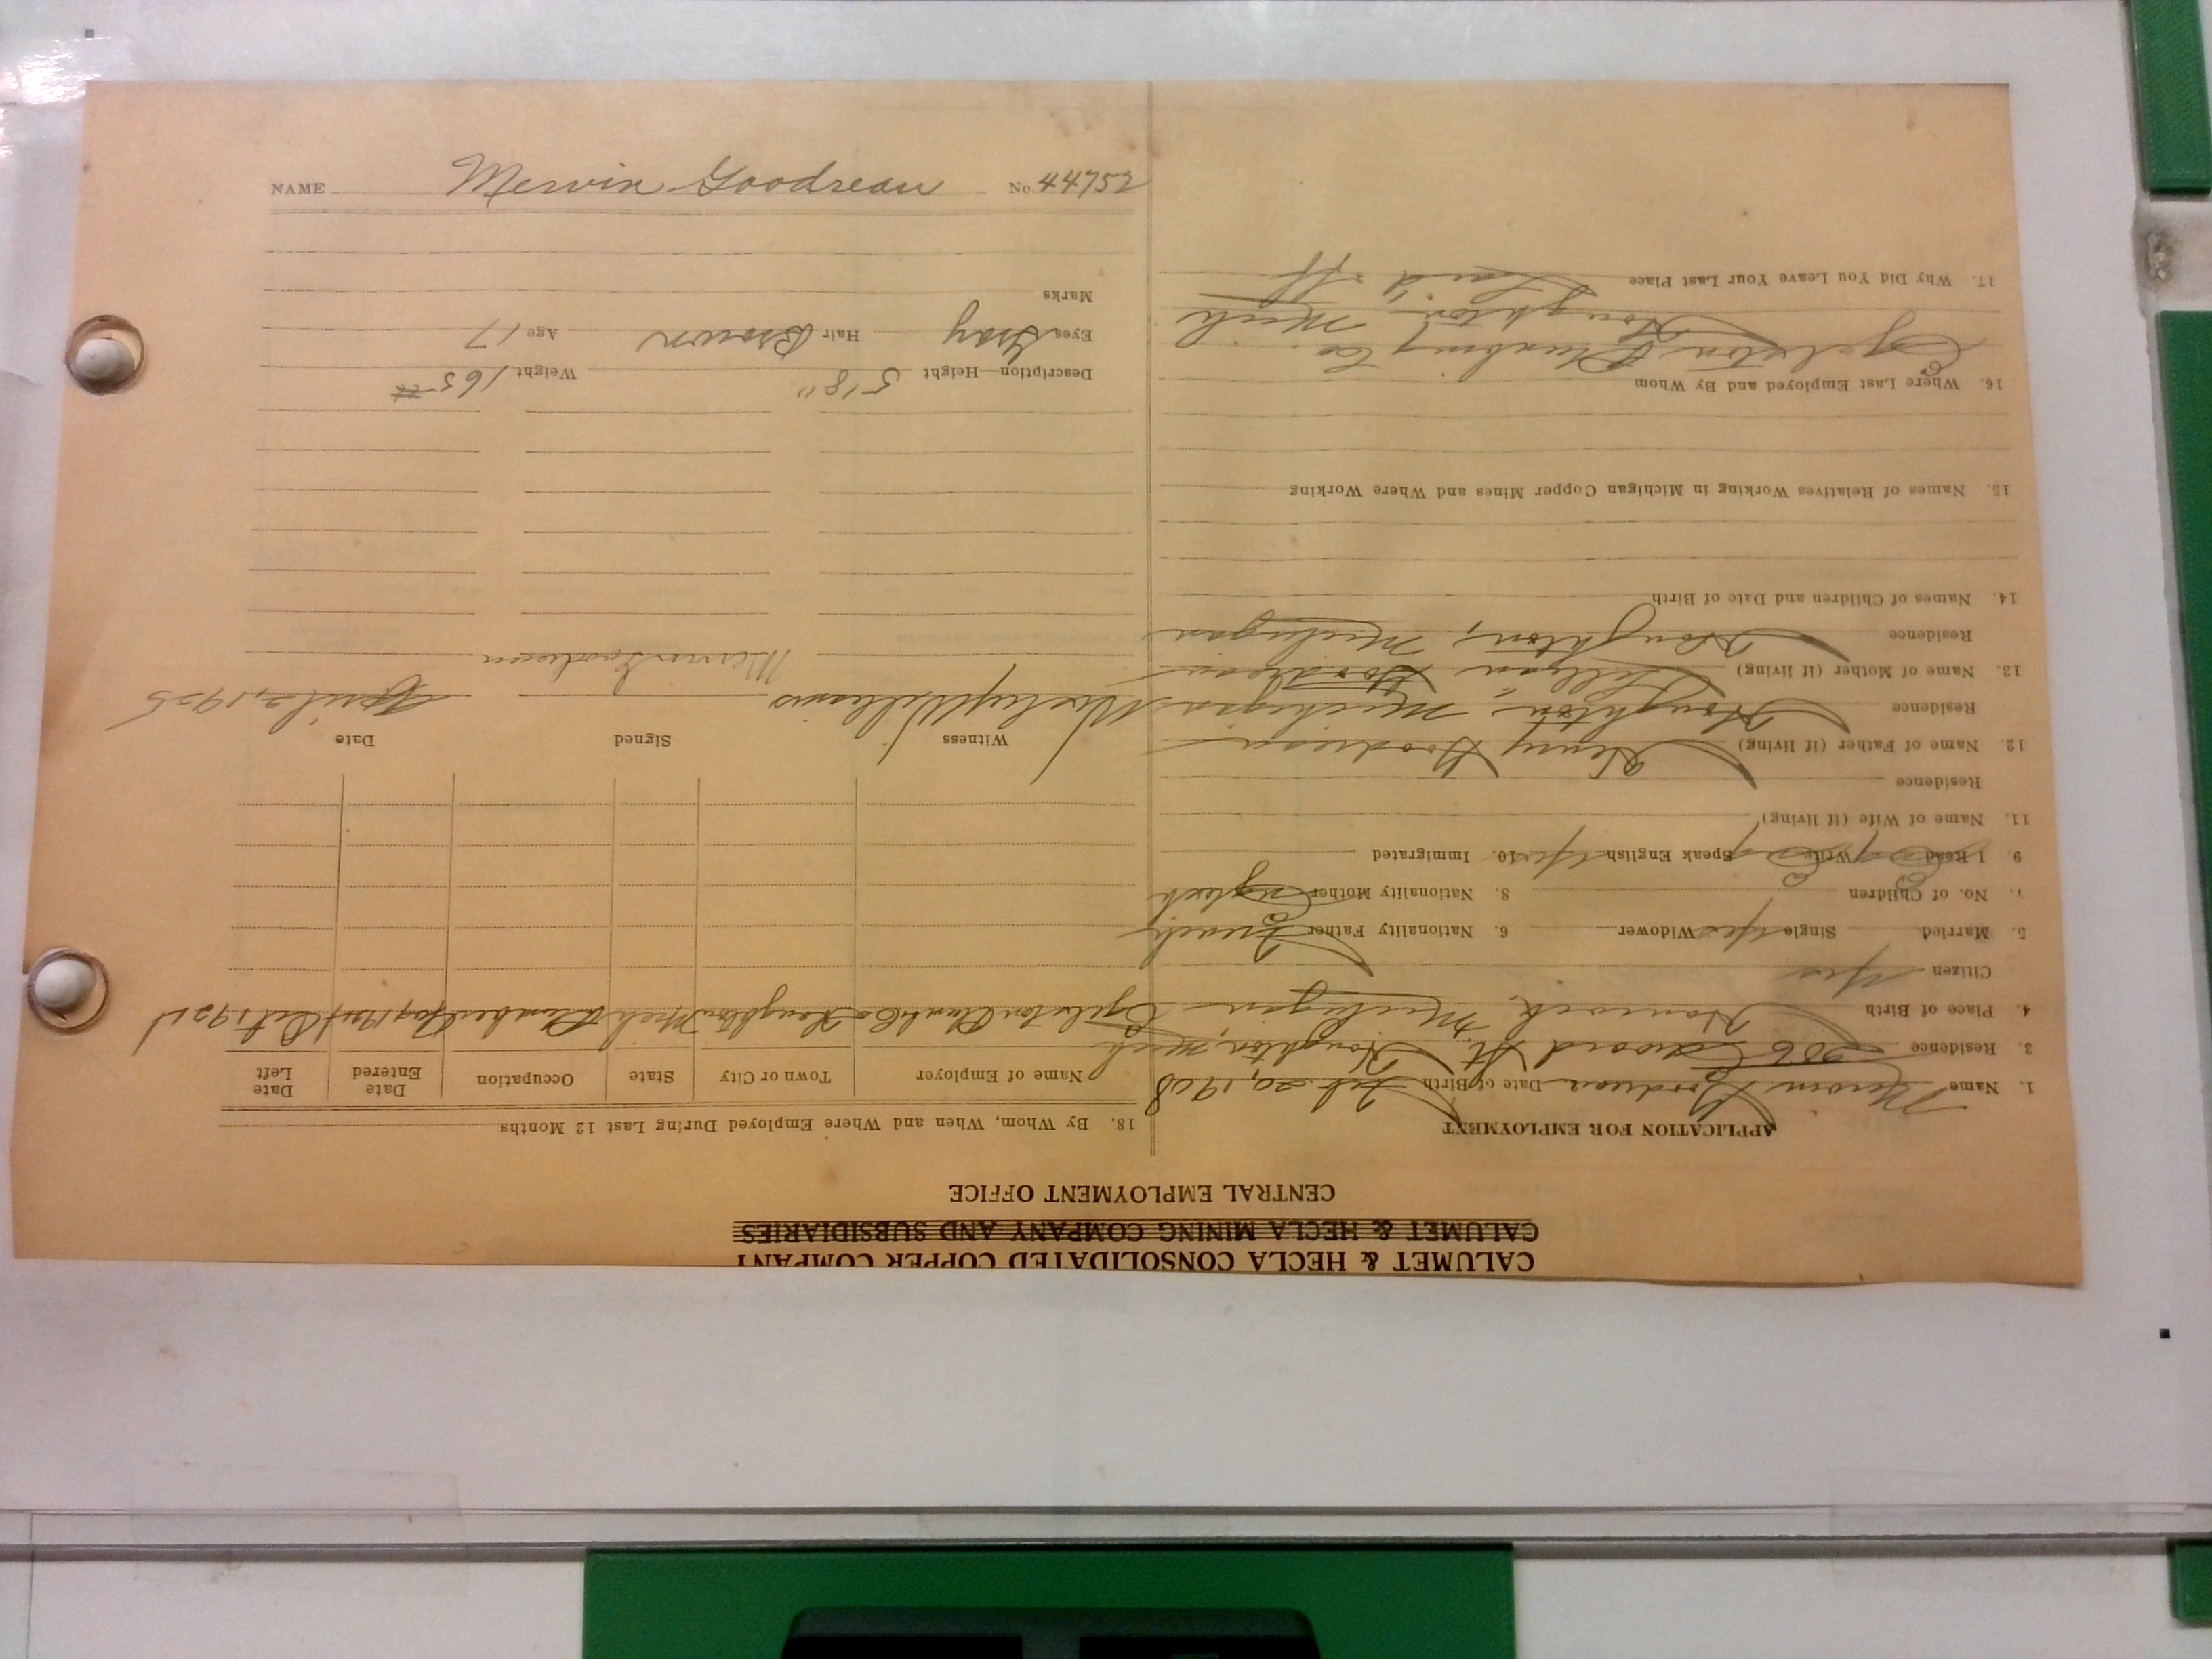 CALUMET & HECLA CONSOLIDATED COPPER COMPANY
CALUMET & HECLA MINING COMPANY AND SUBSIDIARIES
CENTRAL EMPLOYMENT OFFICE
APPLICATION FOR EMPLOYMENT
1. Name Mervin Goodreau Date of Birth Feb. 20, 1908
3. Residence Edward St. Houghton, Mich
4. Place of Birth Hancock, Michigan
Citizen Yes
5. Married Single Yes Widower 6. Nationality Father French
7. No. of Children 8. Nationality Mother English
9. I Read Write Speak English Yes 10. Immigrated
11. Name of Wife (if living)
Residence
12. Name of Father (if living) Henry Goodreau
Residence Houghton, Michigan
13. Name of Mother (if living) Goodreau
Residence Houghton, Michigan
14. Names of Children and Date of Birth
15. Names of Relatives Working in Michigan Copper Mines and Where Working
16. Where Last Employed and By Whom
Plumbing Co.
Houghton, Mich
17. Why Did You Leave Your Last Place Laid off
18. By Whom, When and Where Employed During Last 12 Months
Name of Employer Town or City State Occupation Date Entered Date Left
Houghton Mich
Witness Signed Date
Williams April 2, 1925
Mervin Goodreau
Description—Height 5'8" Weight 165 #
Eyes Gray Hair Brown Age 17
Marks
NAME Mervin Goodreau No. 44752